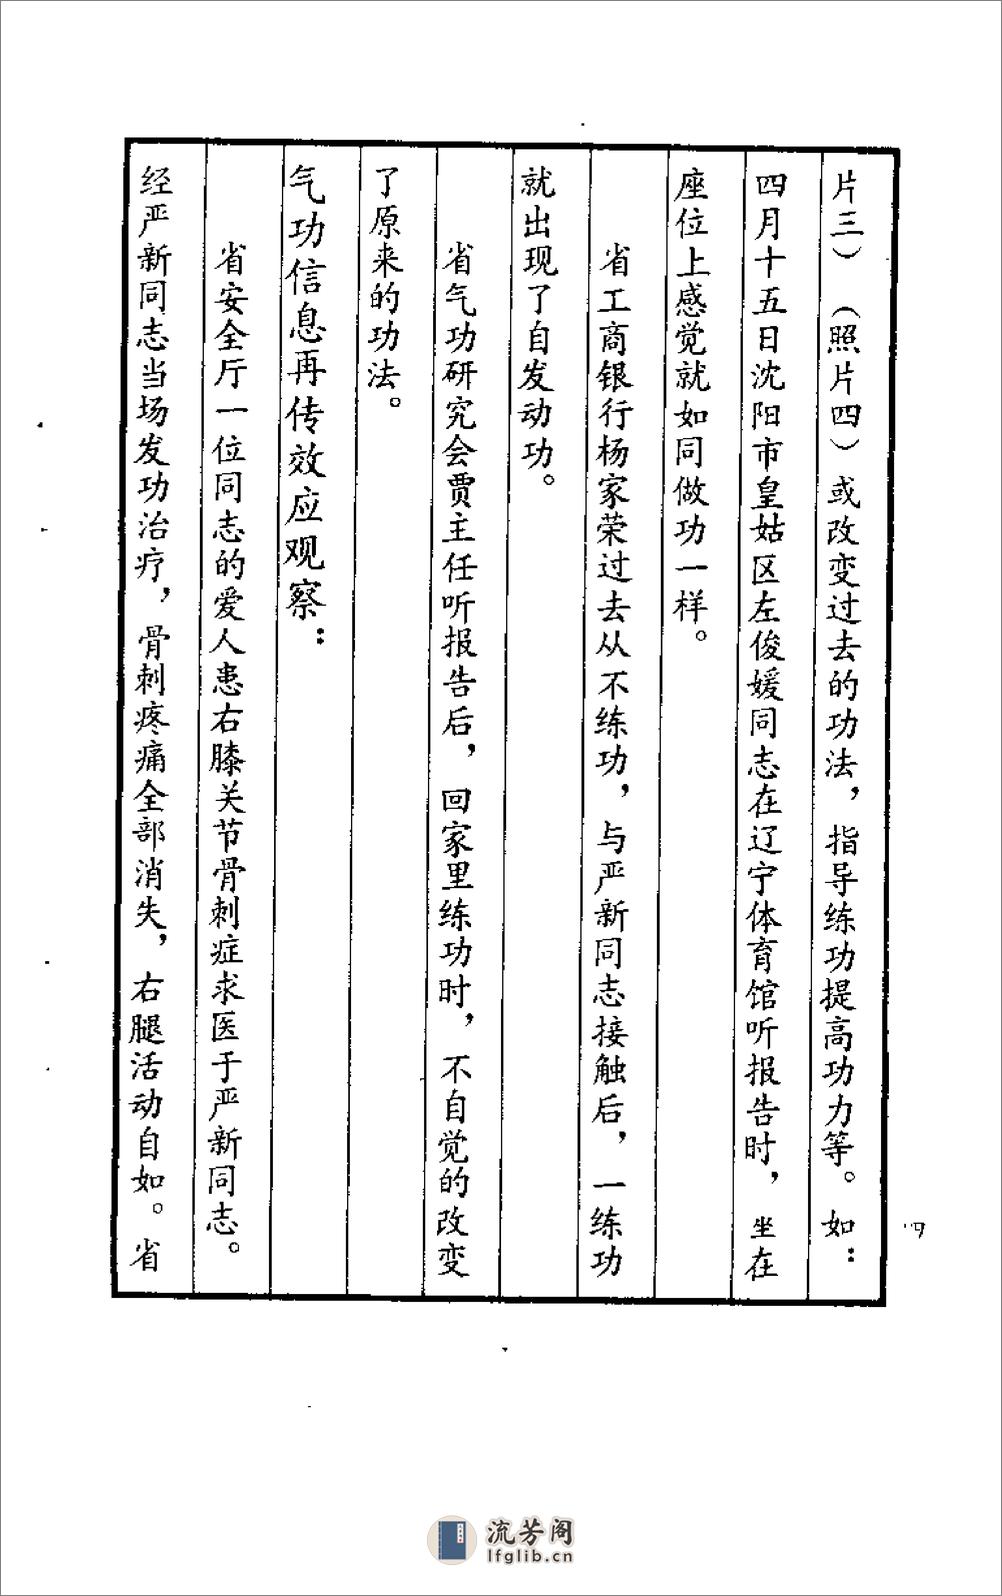 片三）（照片四）或改变过去的功法，指导练功提高功力等。如：
四月十五日沈阳市皇姑区左俊媛同志在辽宁体育馆听报告时，坐在
座位上感觉就如同做功一样。
省工商银行杨家荣过去从不练功，与严新同志接触后，一练功
就出现了自发动功。
省气功研究会贾主任听报告后，回家里练功时，不自觉的改变
了原来的功法。
气功信息再传效应观察：
省安全厅一位同志的爱人患右膝关节骨刺症求医于严新同志。
经严新同志当场发功治疗，骨刺疼痛全部消失，右腿活动自如。省
四
流芳阁
lfglib.cn